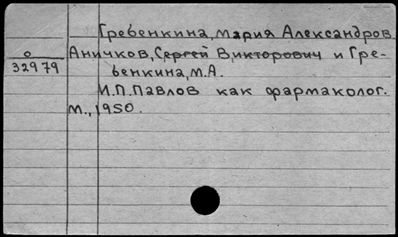 Гребенкина, Мария Александров.
О
32979
Аничков, Сергей Викторович и Гре-
бенкина, М.А.
И.П.Павлов как фармаколог.
М., 1950.